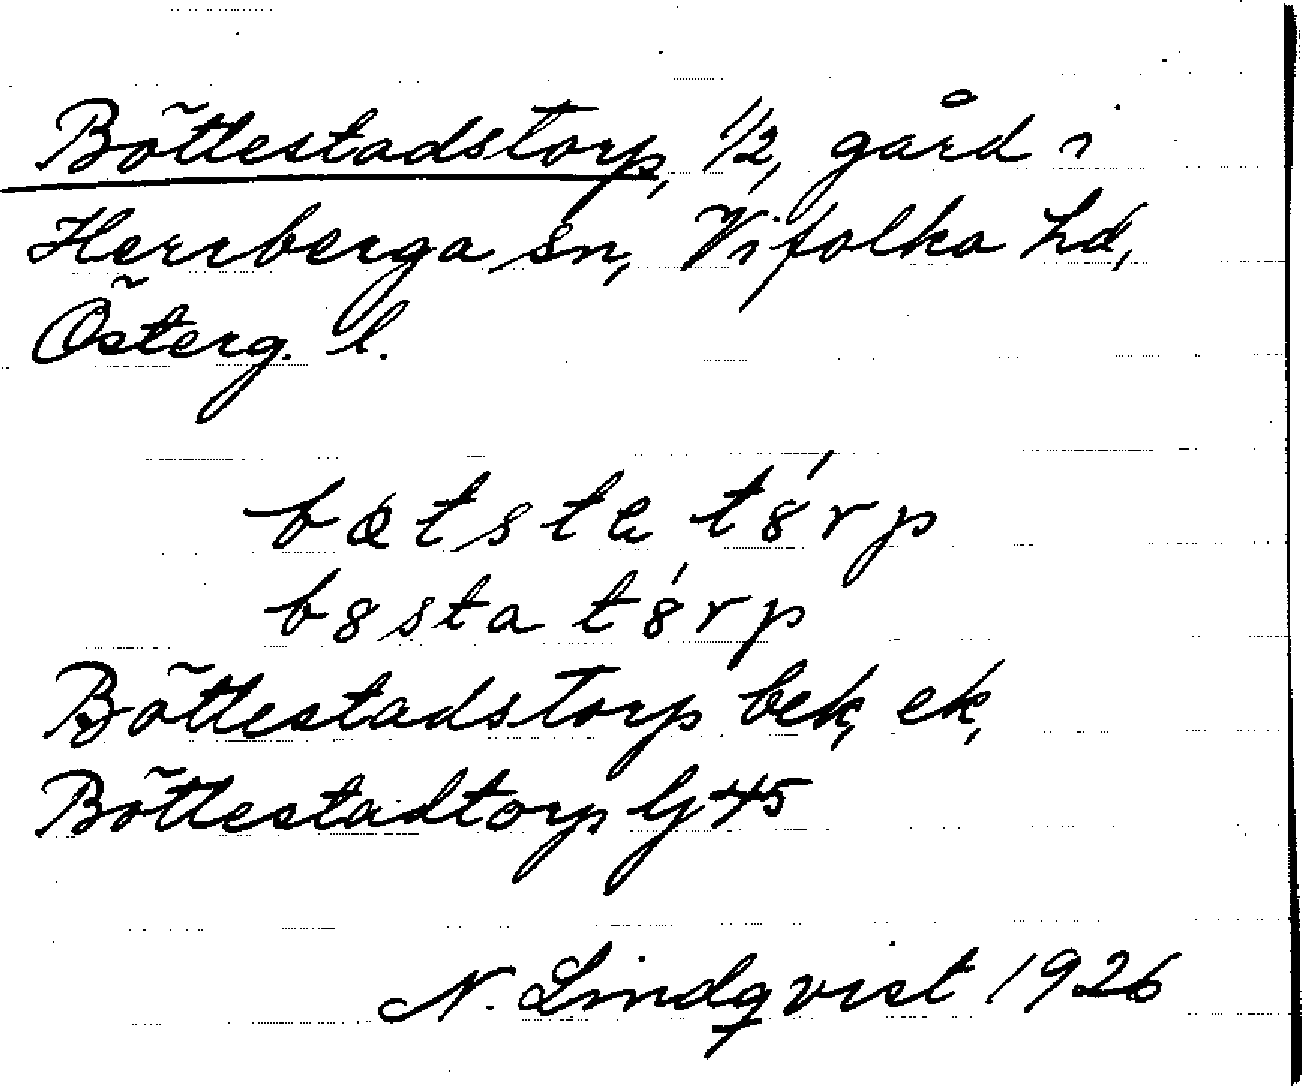 Böttlestadstorp, 1/2, gård i
Herrberga sn, Vifolka hd,
Österg. l.
bøtsta tȣ́rp
bȣsta tȣ́rp
Böttlestadstorp bek, ek,
Böttlestadtorp G 45
N. Lindqvist 1926